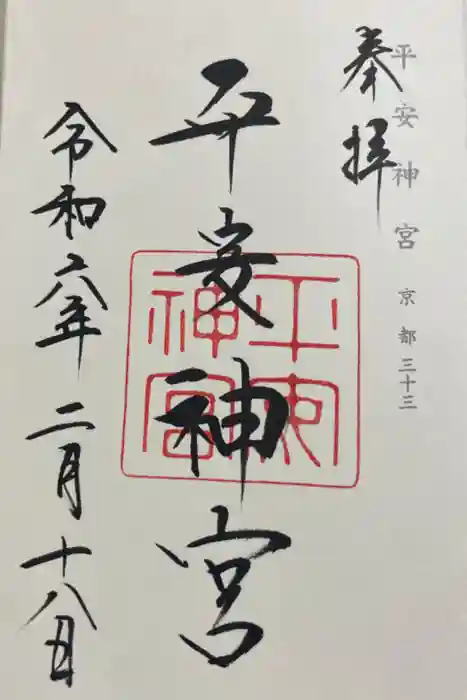 奉拝
平安神宮 京都 三十三
平安神宮
平安神宮
令和六年二月十八日